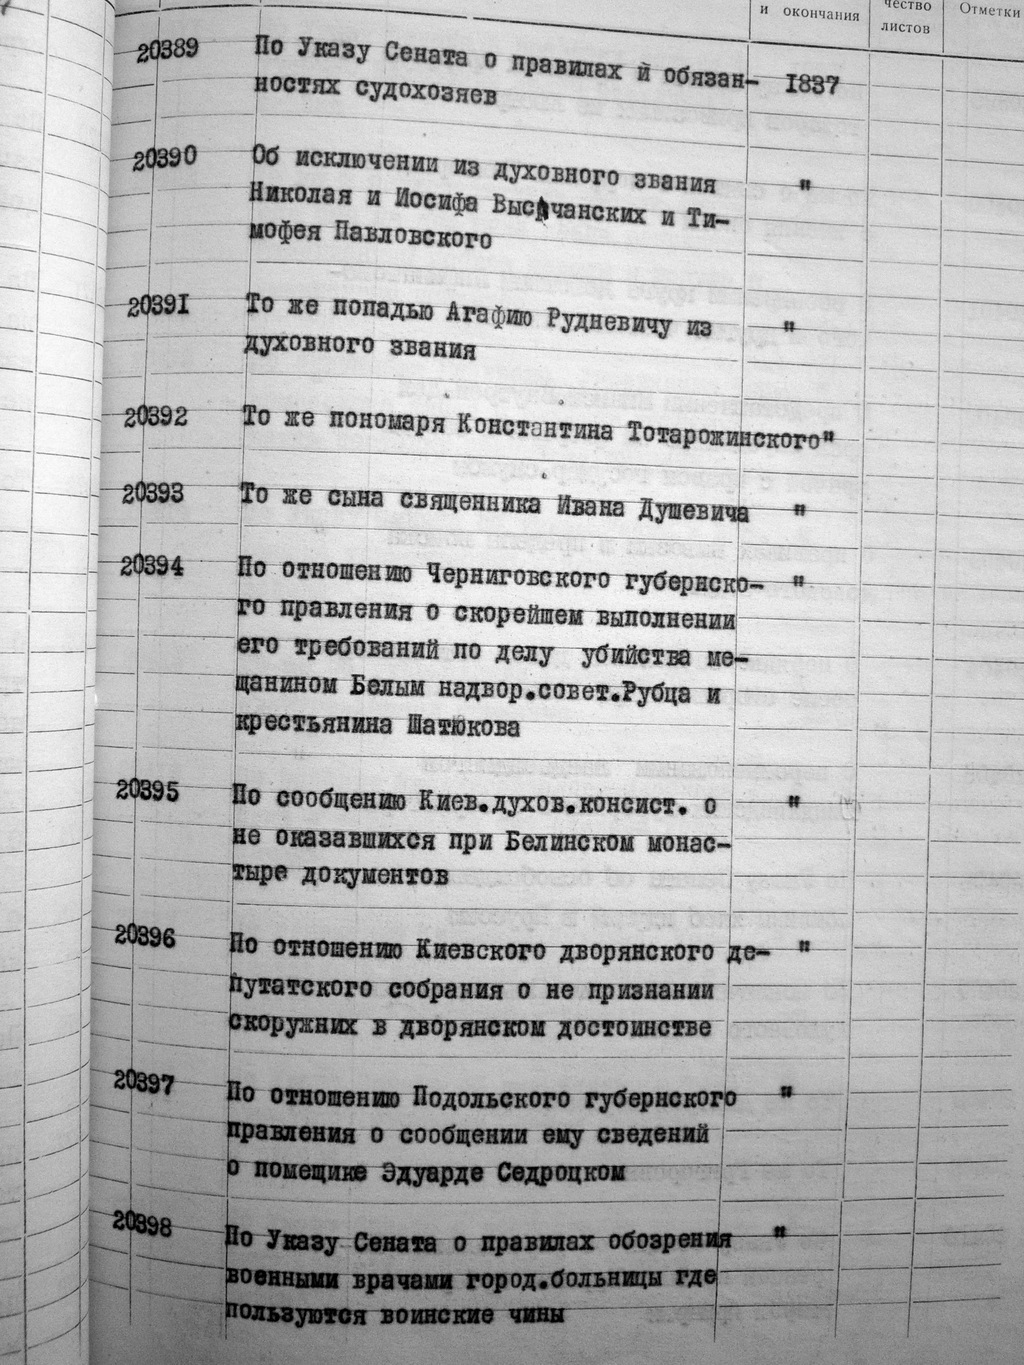 и окончания
чество листов
Отметки
20389 По Указу Сената о правилах и обязан- 1837
ностях судохозяев
20390 Об исключении из духовного звания "
Николая и Иосифа Высочанских и Ти-
мофея Павловского
20391 То же попадью Агафию Рудневичу из "
духовного звания
20392 То же пономаря Константина Тотарожинского"
20393 То же сына священника Ивана Душевича "
20394 По отношению Черниговского губернско- "
го правления о скорейшем выполнении
его требований по делу убийства ме-
щанином Белым надвор.совет.Рубца и
крестьянина Шатюкова
20395 По сообщению Киев.духов.консист. о "
не оказавшихся при Белинском монас-
тыре документов
20396 По отношению Киевского дворянского де- "
путатского собрания о не признании
скоружних в дворянском достоинстве
20397 По отношению Подольского губернского "
правления о сообщении ему сведений
о помещике Эдуарде Седроцком
20398 По Указу Сената о правилах обозрения "
военными врачами город.больницы где
пользуются воинские чины